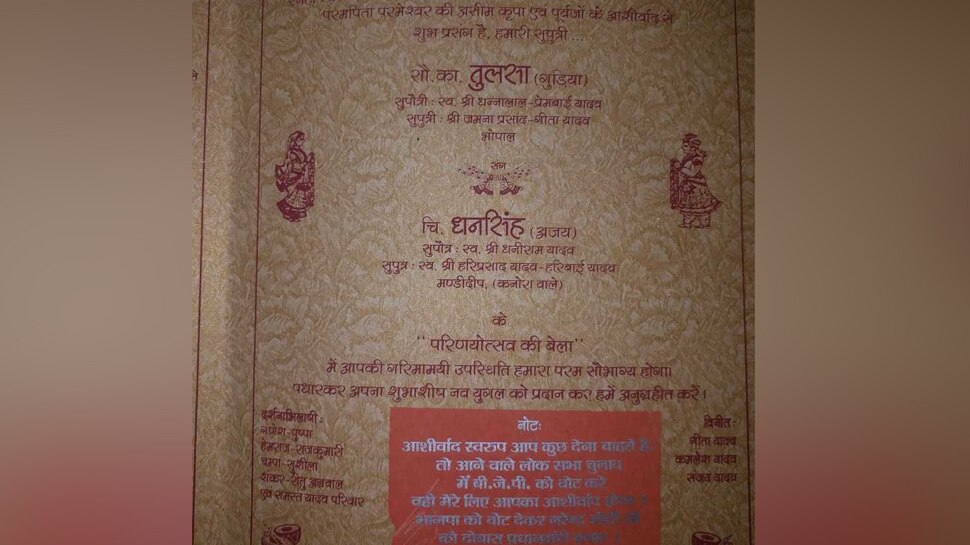 परमपिता परमेश्वर की असीम कृपा एवं पूर्वजों के आशीर्वाद से
शुभ प्रसंग है, हमारी सुपुत्री ...
सौ.का. तुलसा (गुड़िया)
सुपौत्री : स्व. श्री धन्नालाल-प्रेमबाई यादव
सुपुत्री : श्री जमना प्रसाद-गीता यादव
भोपाल
संग
चि. धनसिंह (अजय)
सुपौत्र : स्व. श्री धनीराम यादव
सुपुत्र : स्व. श्री हरिप्रसाद यादव-हरिबाई यादव
मण्डीदीप, (कनोरा वाले)
के
"परिणयोत्सव की बेला"
में आपकी गरिमामयी उपस्थिति हमारा परम सौभाग्य होगा।
पधारकर अपना शुभाशीष नव युगल को प्रदान कर हमें अनुग्रहीत करें।
दर्शनाभिलाषी :
गणेश-पुष्पा
हेमराज-राजकुमारी
चम्पा-सुशीला
शंकर-रितु अग्रवाल
एवं समस्त यादव परिवार
नोटः
आशीर्वाद स्वरुप आप कुछ देना चाहते है,
तो आने वाले लोक सभा चुनाव
में बी.जे.पी. को वोट करें
वही मेरे लिए आपका आशीर्वाद होगा।
भाजपा को वोट देकर नरेन्द्र मोदी जी
को दोबारा प्रधानमंत्री बनायें।
विनीत :
गीता यादव
कमलेश यादव
संजय यादव